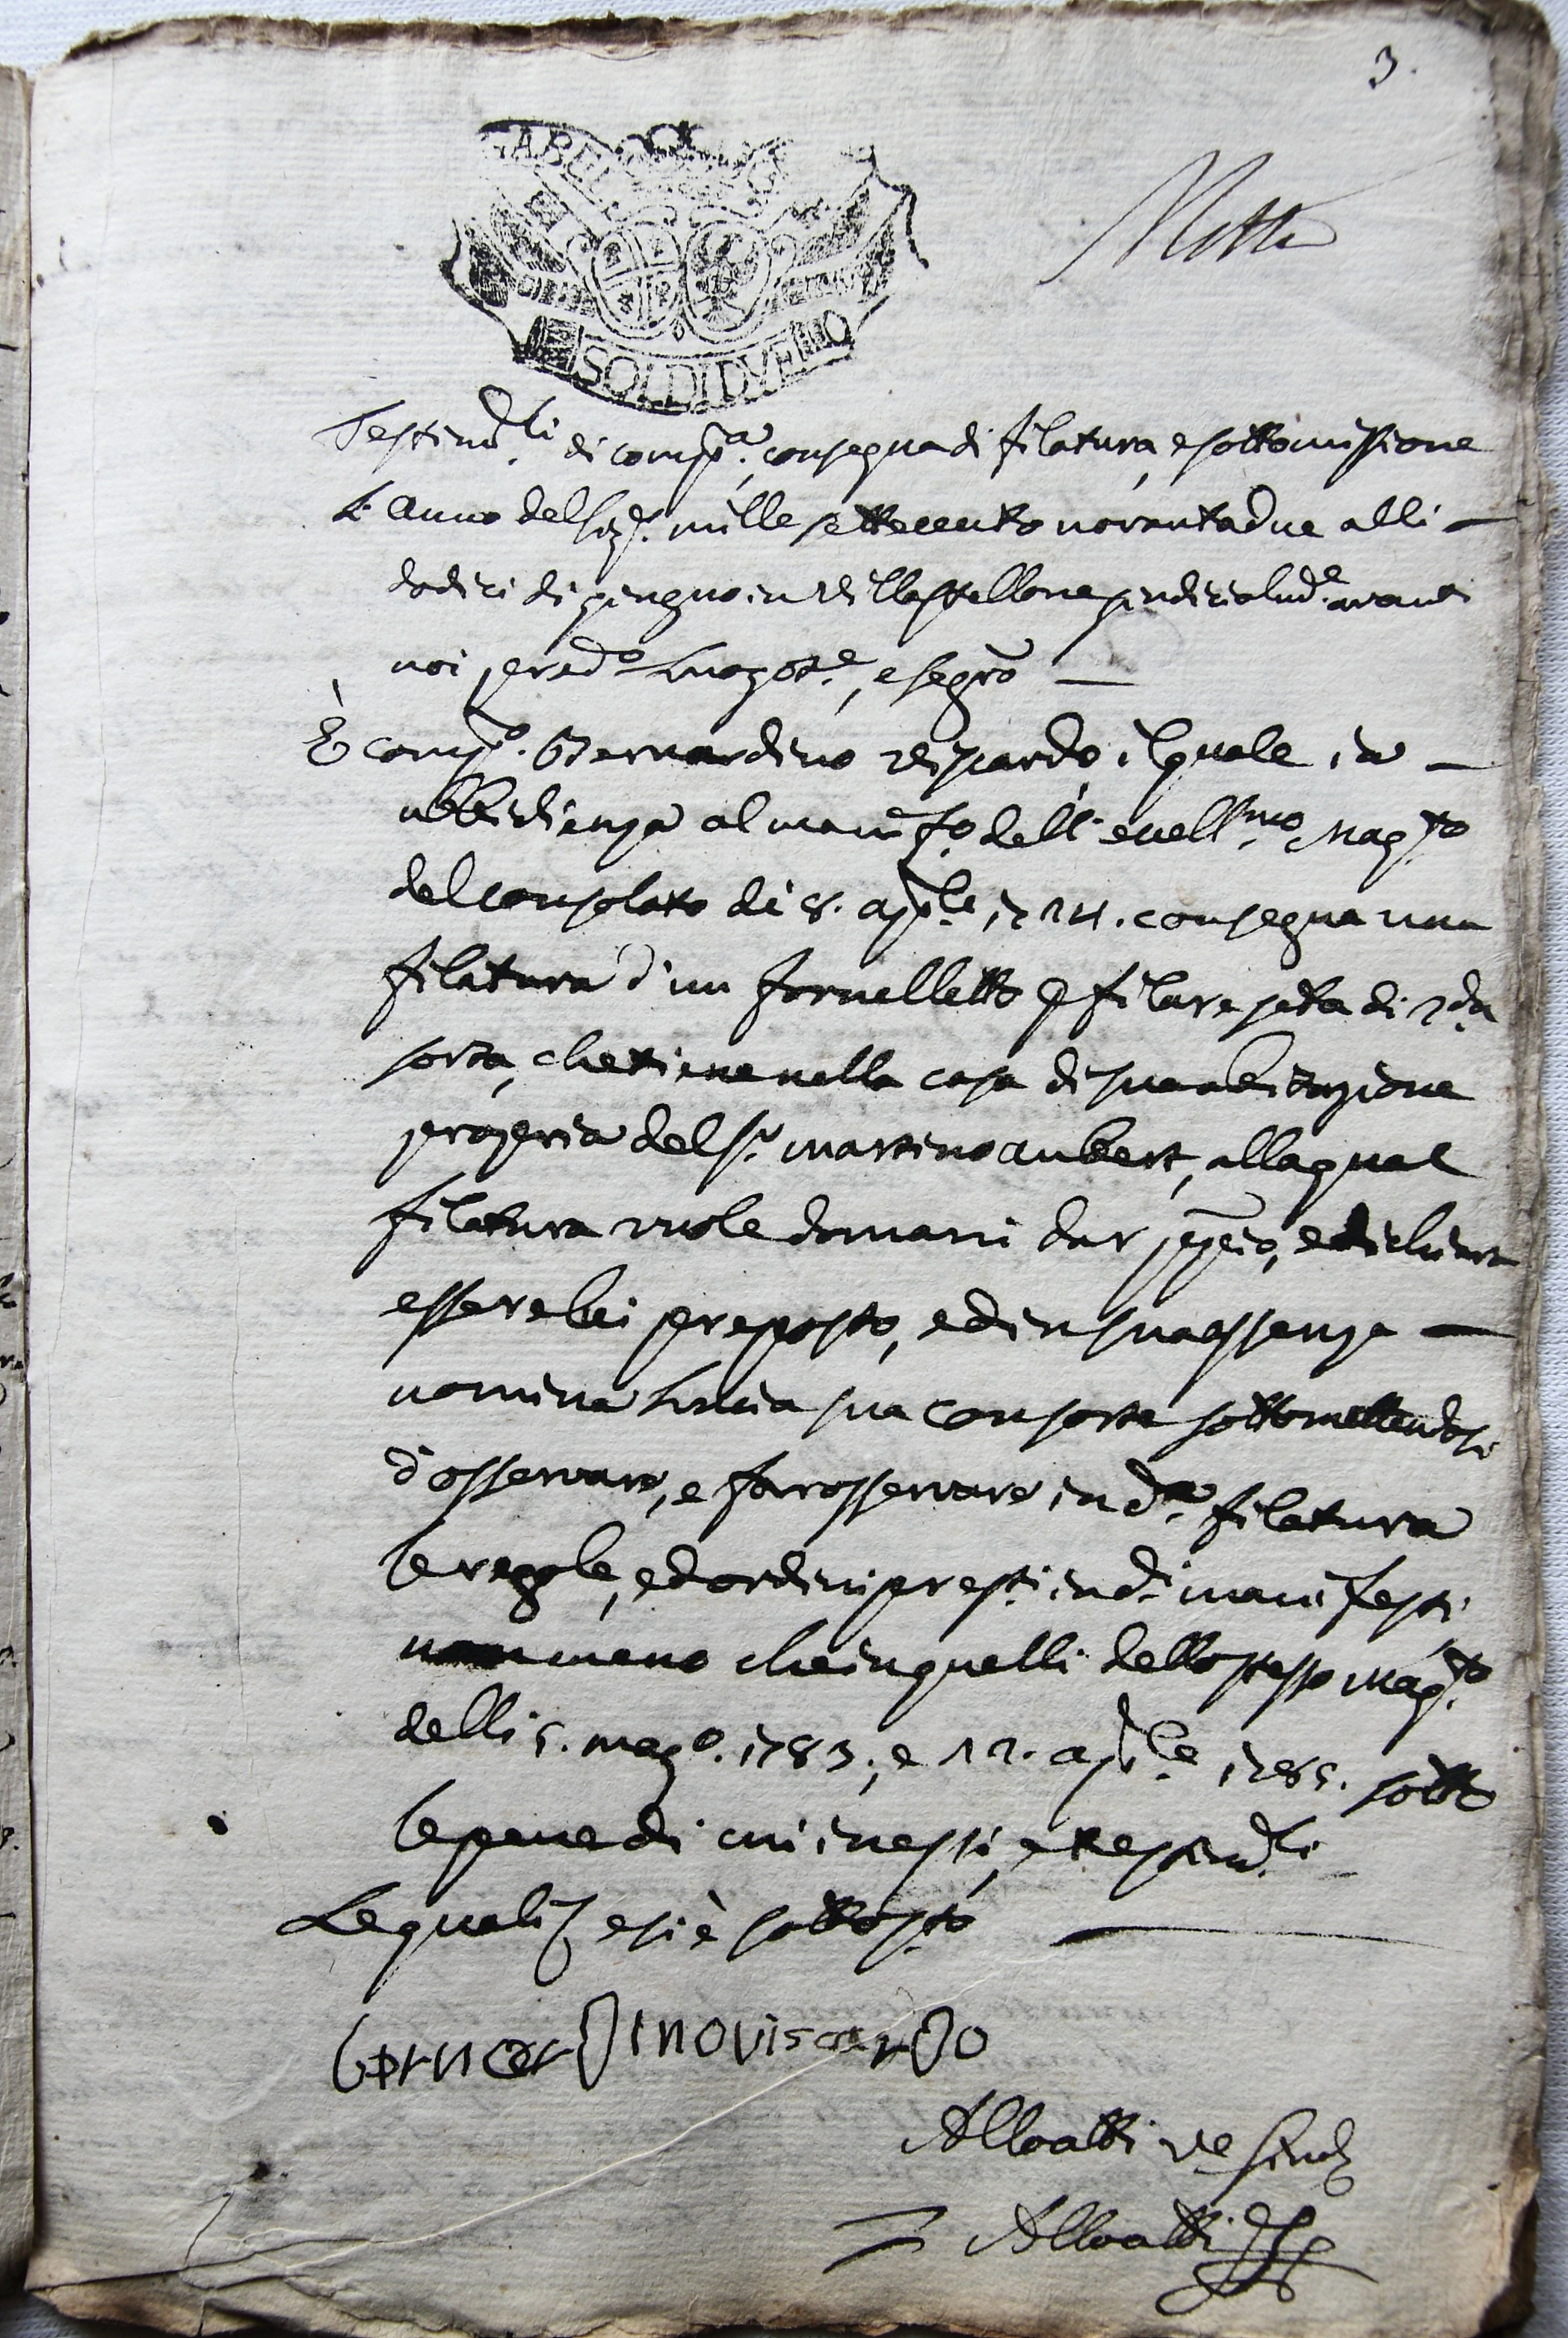 3.
GABEL
SOLDI DVE
Motta
Testim.li di comp.a, consegna di filatura, e sottomissione
L'Anno del Sig.e mille settecento novantadue alli
dodici di giugno in Villastellone giudicialm.e avanti
noi pred.o Luogote.e, e segro
È comp.o Bernardino Viscardo, il quale in
ubbidienza al manif.o dell'eccell.mo Mag.to
del Consolato di 8. ap.le 1724. consegna una
filatura d'un fornelletto p filare seta di 2.da
sorta, che tiene nella casa di sua abitazione
propria del S.r Martino Aubert, alla qual
filatura vuole domani dar ppio, e dichiara
essere lui preposto, ed in sua assenza
nomina Lucia sua consorte sottomettendosi
d'osservare, e far osservare in d.a filatura
le regole, ed ordini pres.ti in d.i manifesti
non meno che in quelli dello stesso Mag.to
delli 5. mag.o 1783., e 12. ap.le 1785. sotto
le pene di cui in essi, e testim.li
Le quali esiè sottos.to
bernardino viscardo
Alloatti
Alloatti